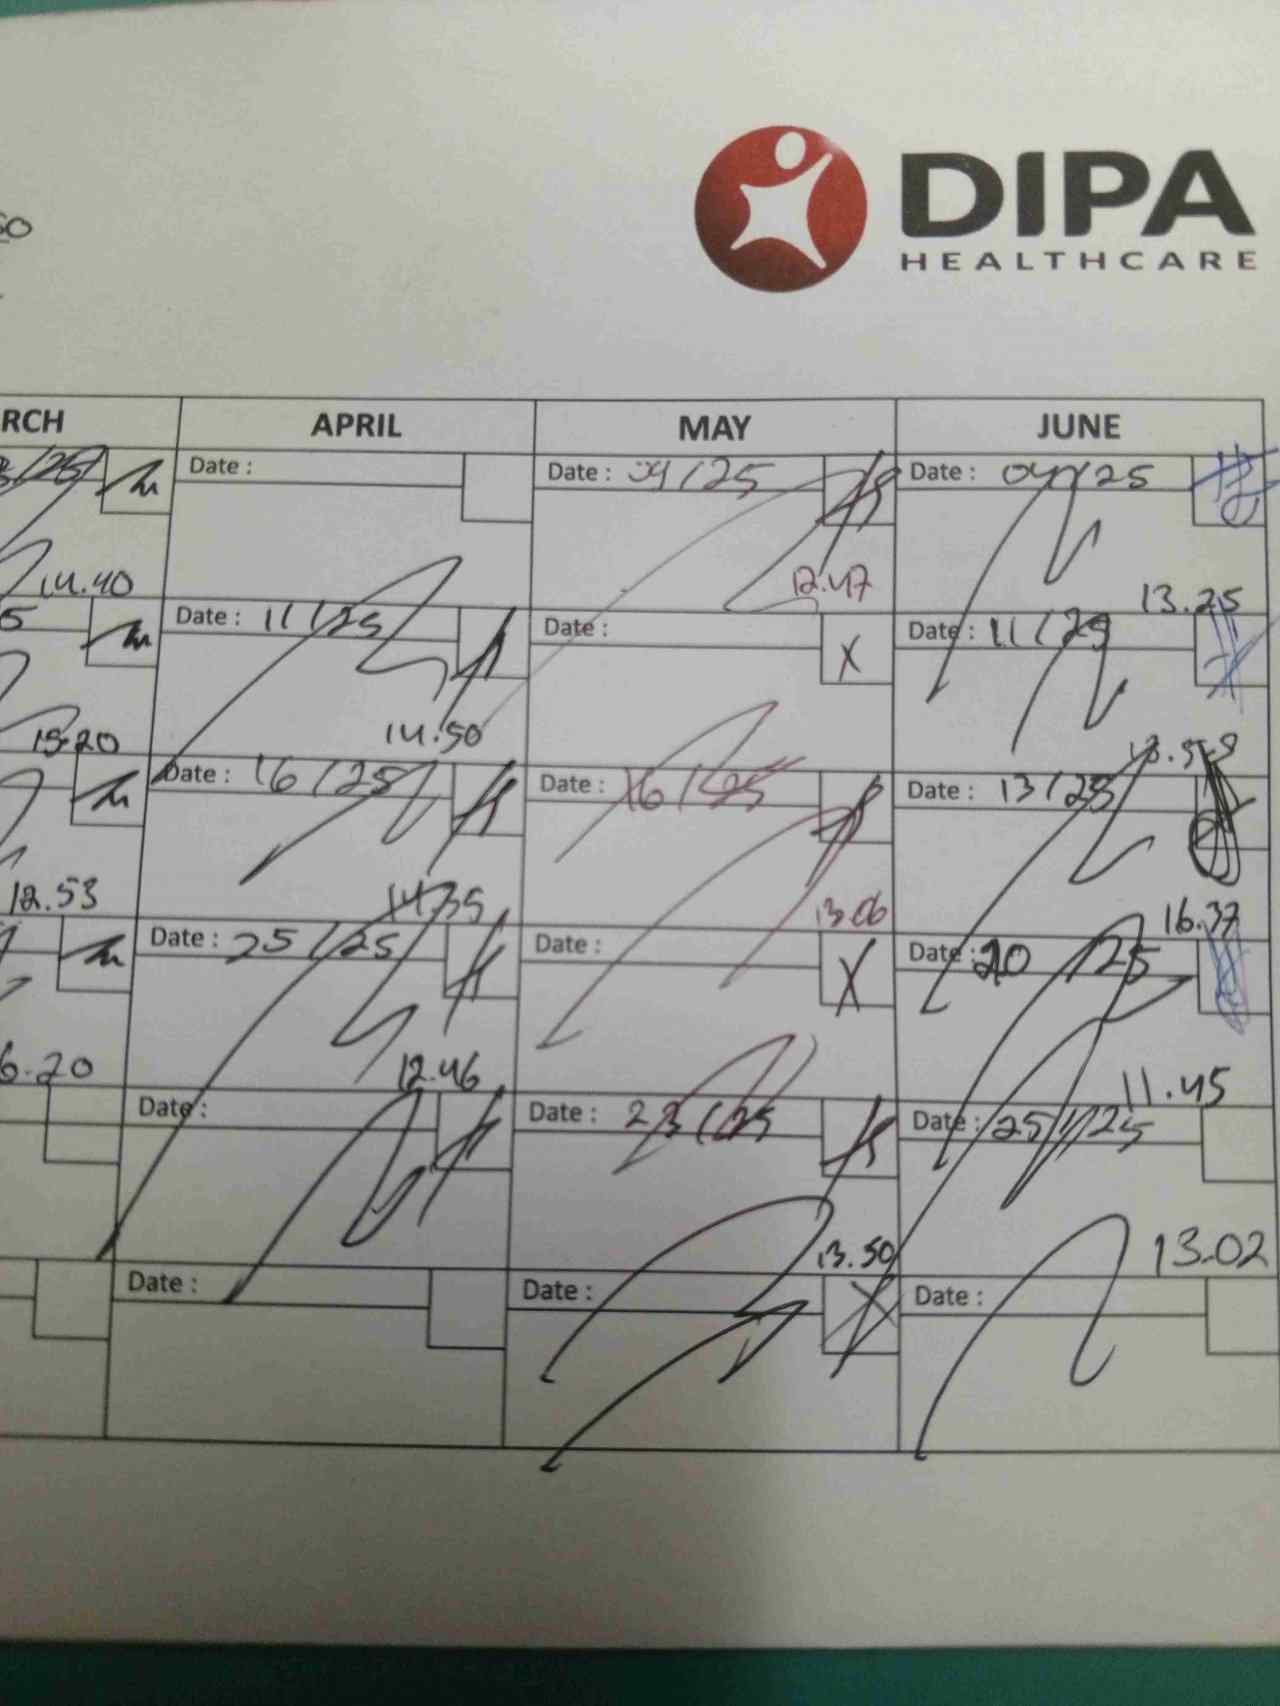 DIPA
HEALTHCARE
RCH APRIL MAY JUNE
Date : Date : 09/25 Date : 04/25
14.40 12.47 13.25
Date : 11/25 Date : X Date : 11/25
15.20 14.50
Date : 16/25 Date : 16/25 Date : 13/25
12.53 14.35 13.06 16.37
Date : 25/25 Date : X Date : 20/25
6.20 12.46 11.45
Date : Date : 23/25 Date : 25/25
13.50 13.02
Date : Date : X Date :